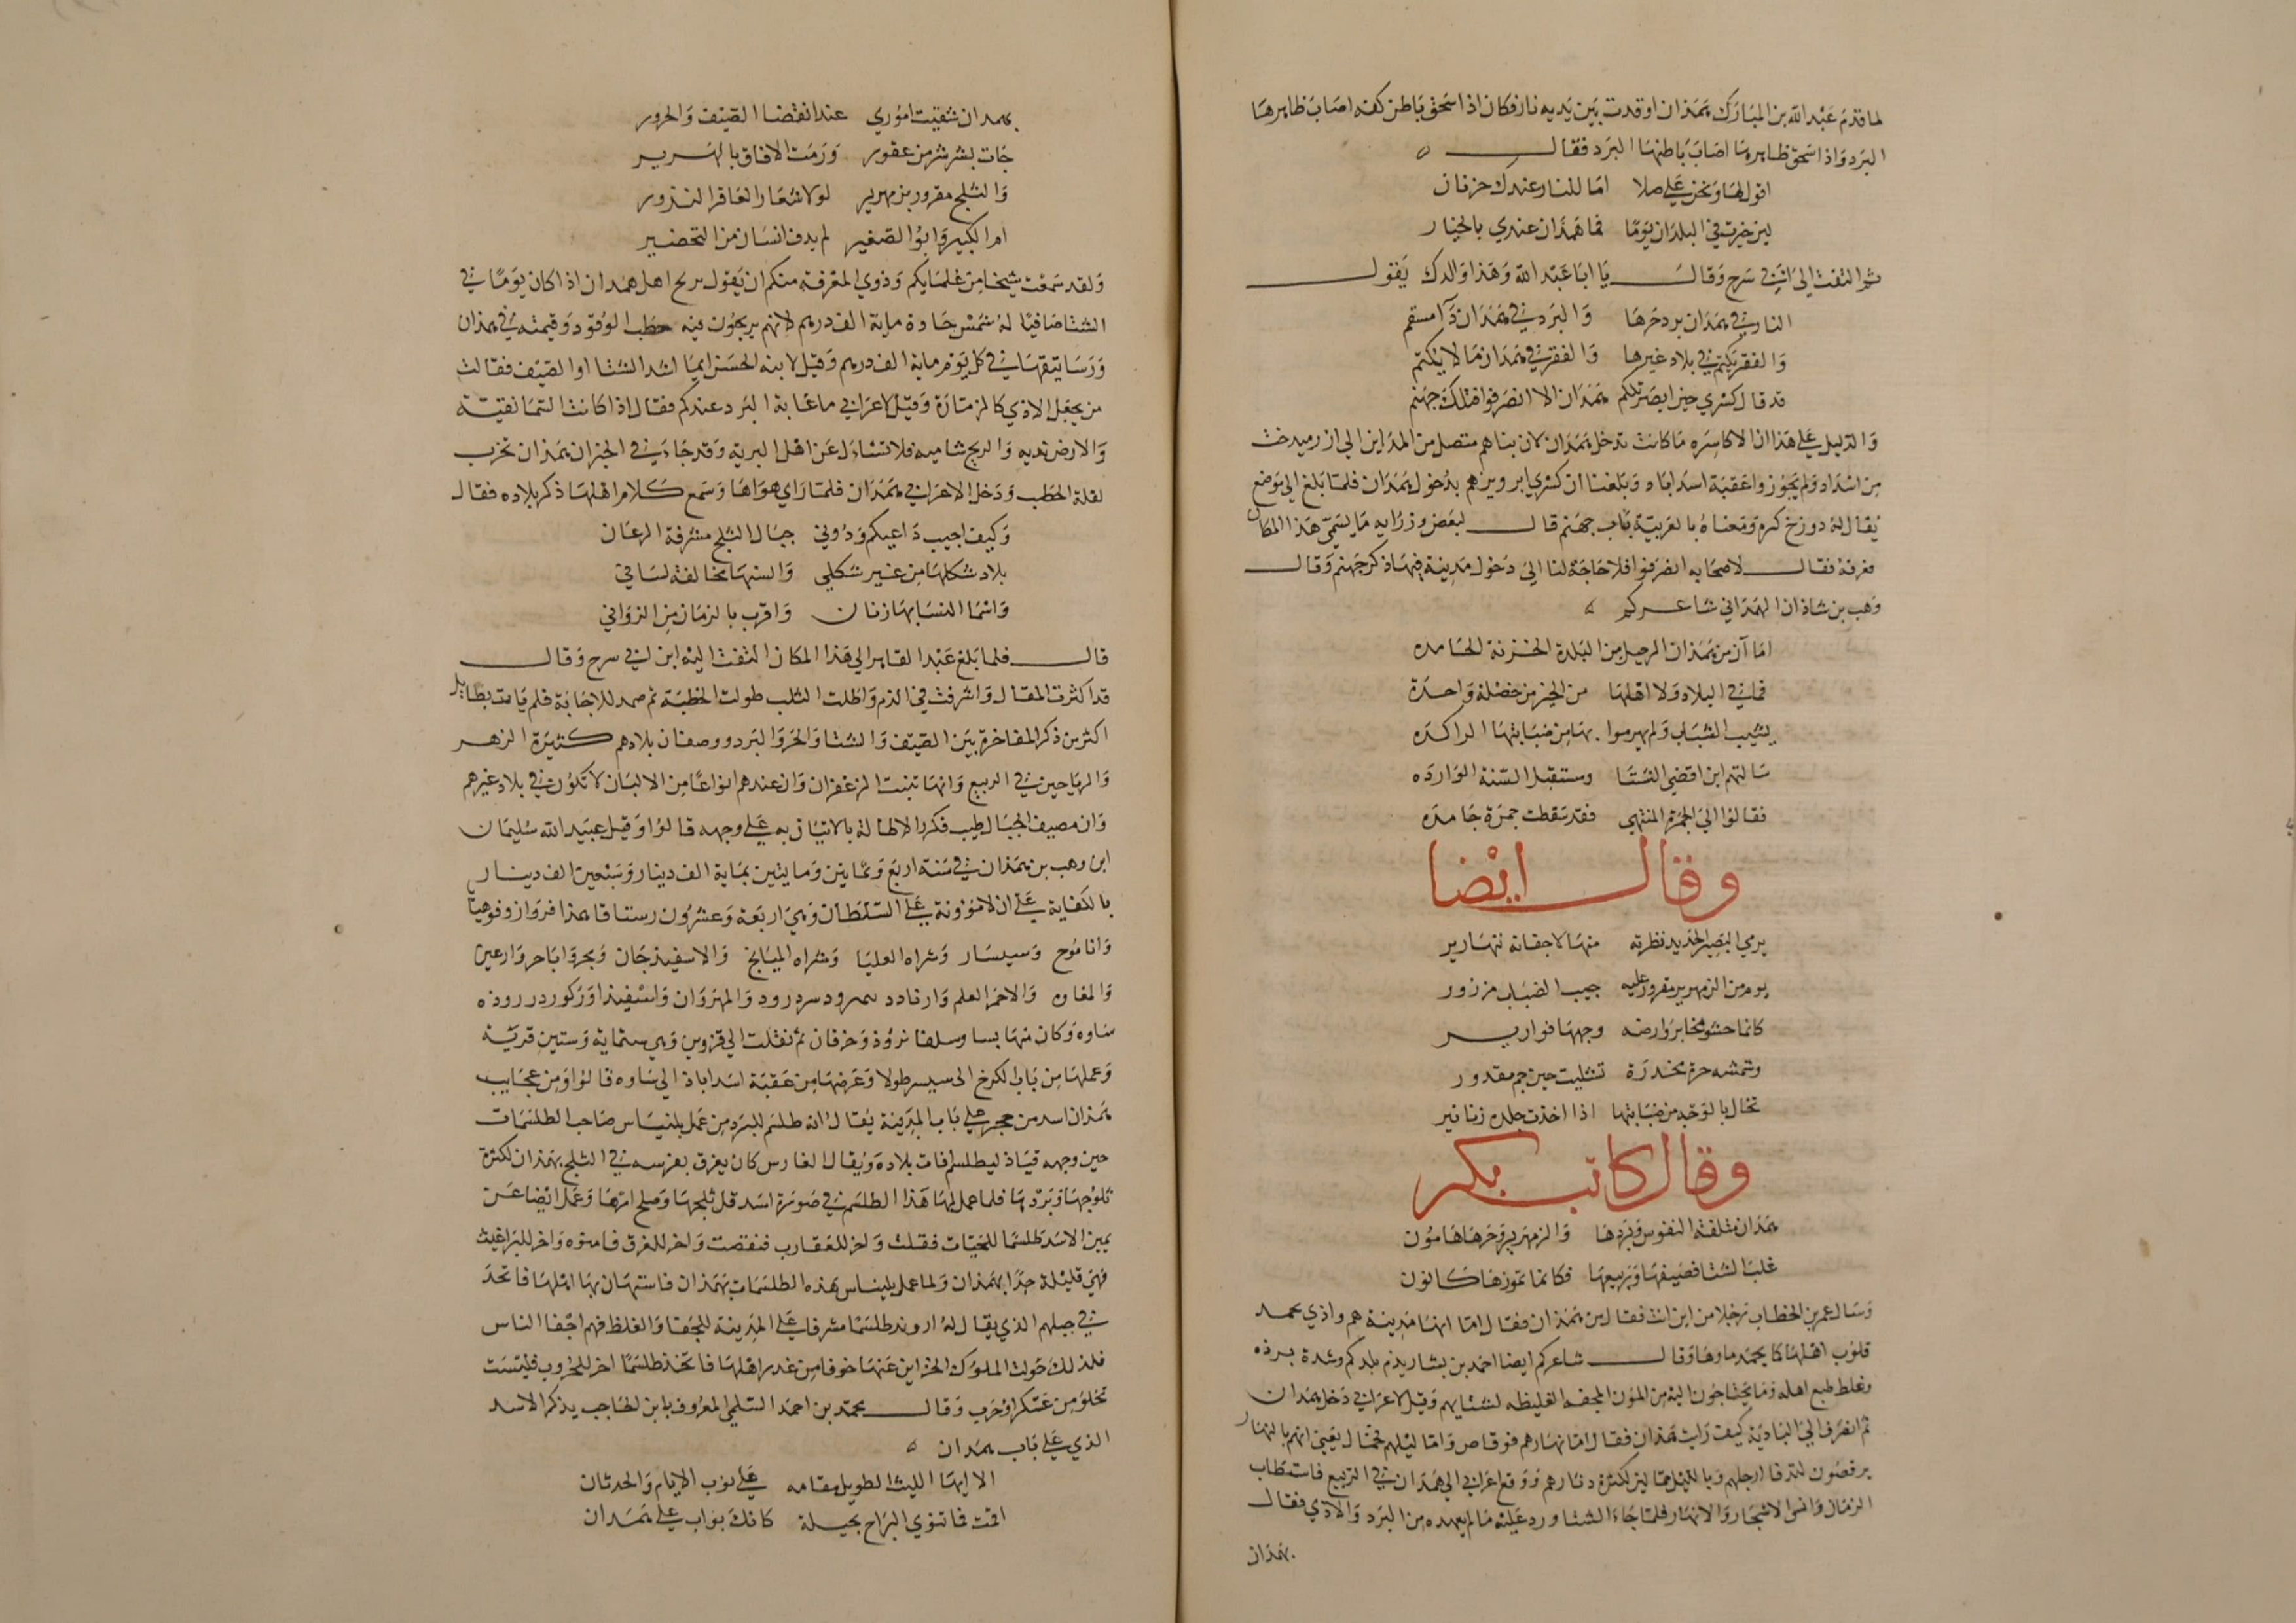 لما قدم عبد الله بن المبارك همذان اوقدت بين يديه نار فكان اذا اسخن باطن كفه اصاب ظاهرها
البرد واذا اسخن ظاهرها اصاب باطنها البرد فقال
اقول لها ونحن على صلا اما للنار عندك حر نار
لين خيرت في البلدان يوما فما همذان عندي بالخيار
ثم التفت الى ابن ابي سرح وقال يا ابا عبد الله وهذا والدك يقول
النار في همذان يبرد حرها والبرد في همذان دآ مسقم
والفقر يكتم في بلاد غيرها والفقر في همذان ما لا يكتم
قد قال كسرى حين ابصر تلكم همذان الا انصرفوا فتلك جهنم
والدليل على هذا ان الاكاسره ما كانت تدخل همذان لان بناهم متصل من المداين الى ازرميدخت
من اسداباد ولم يجوزوا عقبة اسداباد وبلغنا ان كسرى ابرويز هم بدخول همذان فلما بلغ الى موضع
يقال له دوزخ كره ومعناه بالعربية باب جهنم قال لبعض وزرايه ما يسمى هذا المكان
فعرفه فقال لاصحابه انصرفوا فلا حاجة لنا الى دخول مدينة فيها ذكر جهنم وقال
وهب بن شاذان الهمذاني شاعركم
اما آن من همذان الرحيل من البلدة الحزنة الجامده
فما في البلاد ولا اهلها من الخير من خصلة واحدة
يشيب الشباب ولم يهرموا بها من ضبابتها الراكده
سالتهم اين اقصى الشتا ومستقبل السنة الوارده
فقالوا الى الجمرة المنتهى فقد سقطت جمرة جامده
وقال ايضا
يوم من الزمهرير مقرور عليه جيب الضباب مزرور
كانما حشو جوه ابر وارضه وجهها قوارير
وشمسه حرة مخدرة
تخال بالوجه من ضبابتها اذا اخذت جلده زنانير
وقال كاتب بكر
همذان متلفة النفوس ببردها والزمهرير وحرها مامون
غلب الشتا مصيفها وربيعها فكانما تموزها كانون
وسال عمر بن الخطاب رجلا من اين انت فقال من همذان فقال اما انها مدينة هم واذى يجمد
قلوب اهلها كما يجمد ماوها وقال شاعركم ايضا احمد بن بشار يذم بلدكم وشدة برده
وغلظ طبع اهله وما يحتاجون اليه من المون المجحفه الغليظه لشتايهم وقيل لاعرابي دخل همذان
ثم انصرف الى البادية كيف رايت همذان فقال اما نهارهم فرقاص واما ليلهم فحمال يعني انهم بالنهار
يرقصون لتدفا ارجلهم وبالليل حمالين لكثرة دثارهم ووقع اعرابي الى همذان في الربيع فاستطاب
الزمان وانس الاشجار والانهار فلما جاء الشتا ورد عليه ما لم يعهده من البرد والاذى فقال
بهمذان
بهمدان شقيت اموري عند انقضا الصيف والحرور
جات بشر شر من عقور ورمت الافاق بالهرير
والثلج مقرور بزمهرير لولا شعار العاقر النذور
ام الكبير وابو الصغير لم يدف انسان من التحضير
ولقد سمعت شيخا من علمايكم وذوي المعرفة منكم ان يقول يربح اهل همدان اذا كان يوما في
الشتا صافيا له شمس حارة ماية الف درهم لانهم يربحون فيه حطب الوقود وقيمته في همذان
ورساتيقها في كل يوم ماية الف درهم وقيل لابنة الحسن ايما اشد الشتا او الصيف فقالت
من يجعل الاذى كالزمانة وقيل لاعرابي ما غاية البرد عندكم فقال اذا كانت السما نقية
والارض ندية والريح شامية فلا تسال عن اهل البرية وقد جا في الخبر ان همذان تخرب
لقلة الحطب ودخل الاعرابي همذان فلما راى هواها وسمع كلام اهلها ذكر بلاده فقال
وكيف اجيب داعيكم ودوني جبال الثلج مشرفة الرعان
بلاد شكلها من غير شكلي والسنها مخالفة لساني
واسما النسا بها زنان واقرب بالزمان من الزواني
قال فلما بلغ عبد القاهر الى هذا المكان التفت اليه ابن ابي سرح وقال
قد اكثرت المقال واسرفت في الذم واطلت الثلب طولت الخطبة ثم صمد للاجابة فلم يات بطايل
اكثر من ذكر المفاخرة بين الصيف والشتا والحر والبرد ووصف ان بلادهم كثيرة الزهر
والرياحين في الربيع وانها تنبت الزعفران وان عندهم انواعا من الالبان لا تكون في بلاد غيرهم
وان مصيف الجبال طيب فكره الاطالة بالاتيان به على وجهه قالوا وقبل عبيد الله سليمان
ابن وهب بن همذان في سنة اربع وثمانين ومايتين بماية الف دينار وسبعين الف دينار
بالكفاية على ان لا موونة على السلطان وهي اربعة وعشرون رستاقا همذا فرواز وقوهيا
وانا موج وسيسار وشراه العليا وشراه الميانج والاسفيذجان وبحر واباجر وارعين
والمغاره والاحمر العلم وارناد سمرود سردرود والمهروان واسفيذا
ساوه وكان منها بسا وسلفانروذ وخرقان ثم نقلت الى قزوين وهي ستماية وستين قرية
وعملها من باب الكرخ الى سيسر طولا وعرضها من عقبة اسداباذ الى ساوه قالوا ومن عجايب
همذان اسد من حجر على باب المدينة يقال انه طلسم للبرد من عمل بلنياس صاحب الطلسمات
حين وجهه قباذ ليطلسم افات بلاده ويقال ان الفارس كان يغرق بفرسه في الثلج بهمذان لكثرة
ثلوجها وبردها فلما عمل لها هذا الطلسم في صورة اسد قل ثلجها وصلح امرها وعمل ايضا عن
يمين الاسد طلسما للحيات فقلت واخر للعقارب فنقصت واخر للغرق فامنوه واخر للبراغيث
فهي قليلة جدا بهمذان ولما عمل بليناس هذه الطلسمات بهمذان فاستهان بها اهلها فاتخذ
في جبلهم الذي يقال له اروند طلسما مشرفا على المدينة للجفا والغلظ فهم اجفا الناس
فلذلك حولت الملوك الخزاين عنها خوفا من غدر اهلها فاتخذ طلسما اخر للحروب فليست
تخلو من عسكر او حرب وقال محمد بن احمد السلمي المعروف بابن الحاجب يذكر الاسد
الذي على باب همدان
الا ايها الليث الطويل مقامه على نوب الايام والحدثان
اقمت فما تنوي البراح بحيلة كانك بواب على همدان